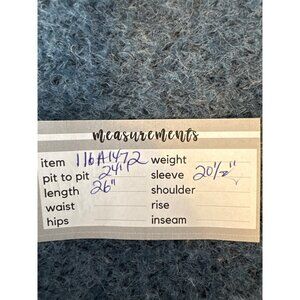 measurements
item 116A1472 weight
pit to pit 24" sleeve 20½"
length 26" shoulder
waist rise
hips inseam